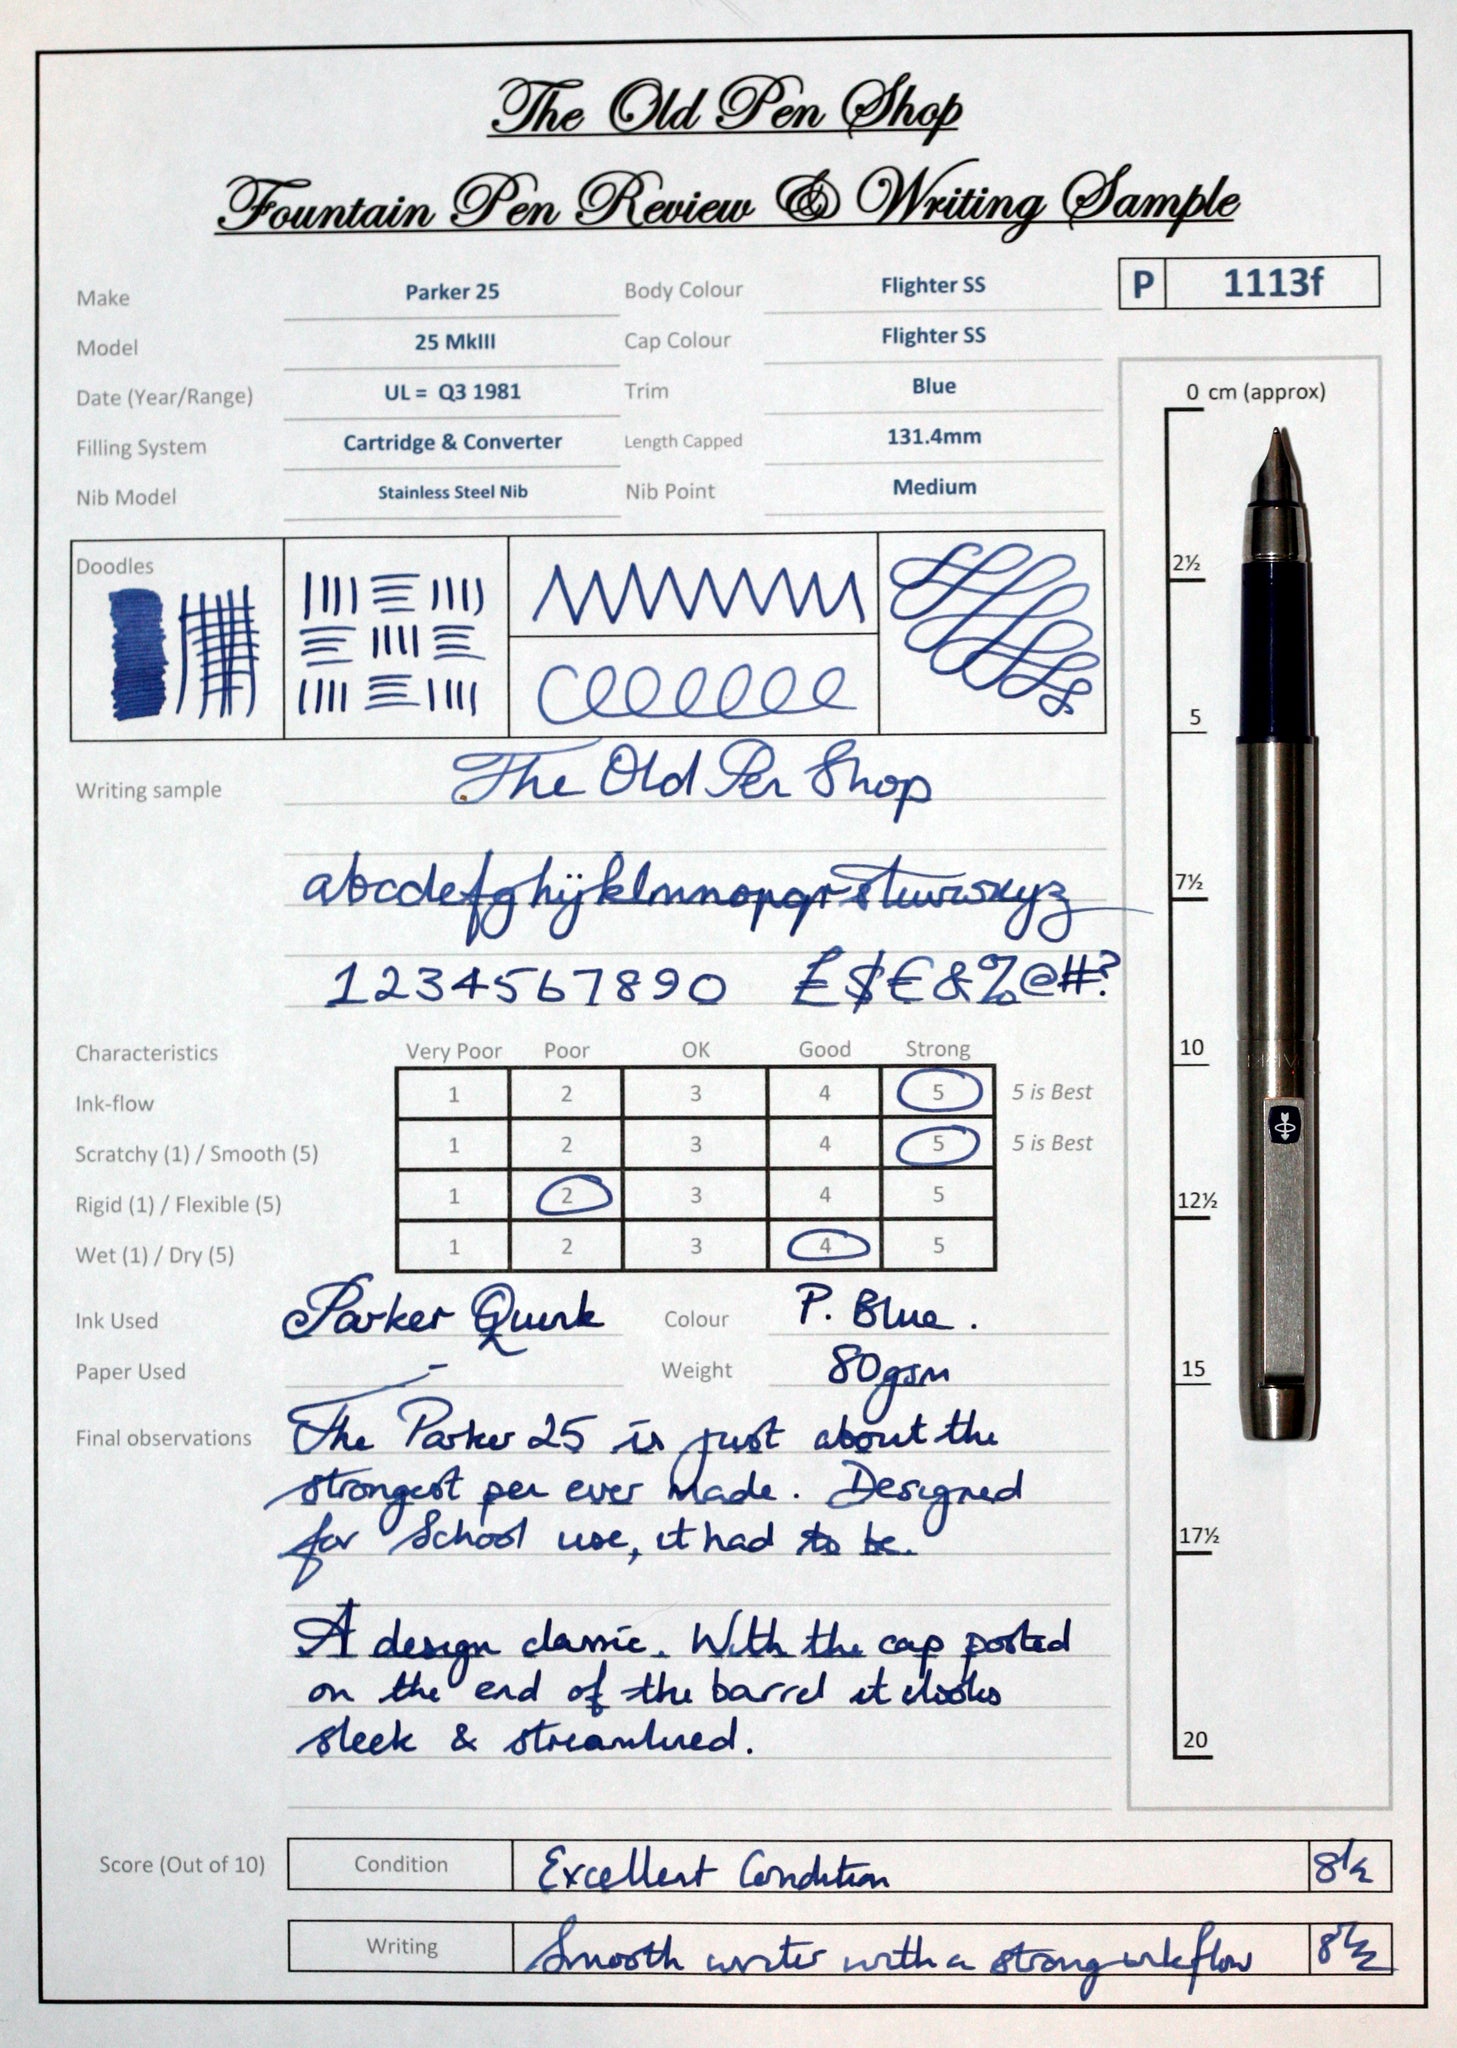 The Old Pen Shop
Fountain Pen Review & Writing Sample
Make Parker 25 Body Colour Flighter SS P 1113f
Model 25 MkIII Cap Colour Flighter SS
Date (Year/Range) UL = Q3 1981 Trim Blue
Filling System Cartridge & Converter Length Capped 131.4mm
Nib Model Stainless Steel Nib Nib Point Medium
Doodles
Writing sample The Old Pen Shop
abcdefghijklmnopqrstuvwxyz
1234567890 £$€&%@#?
Characteristics Very Poor Poor OK Good Strong
Ink-flow 1 2 3 4 5 5 is Best
Scratchy (1) / Smooth (5) 1 2 3 4 5 5 is Best
Rigid (1) / Flexible (5) 1 2 3 4 5
Wet (1) / Dry (5) 1 2 3 4 5
Ink Used Parker Quink Colour P. Blue.
Paper Used - Weight 80gsm
Final observations The Parker 25 is just about the
strongest pen ever made. Designed
for School use, it had to be.
A design classic. With the cap posted
on the end of the barrel it looks
sleek & streamlined.
Score (Out of 10) Condition Excellent Condition 8½
Writing Smooth writer with a strong inkflow 8½
0 cm (approx)
2½
5
7½
10
12½
15
17½
20